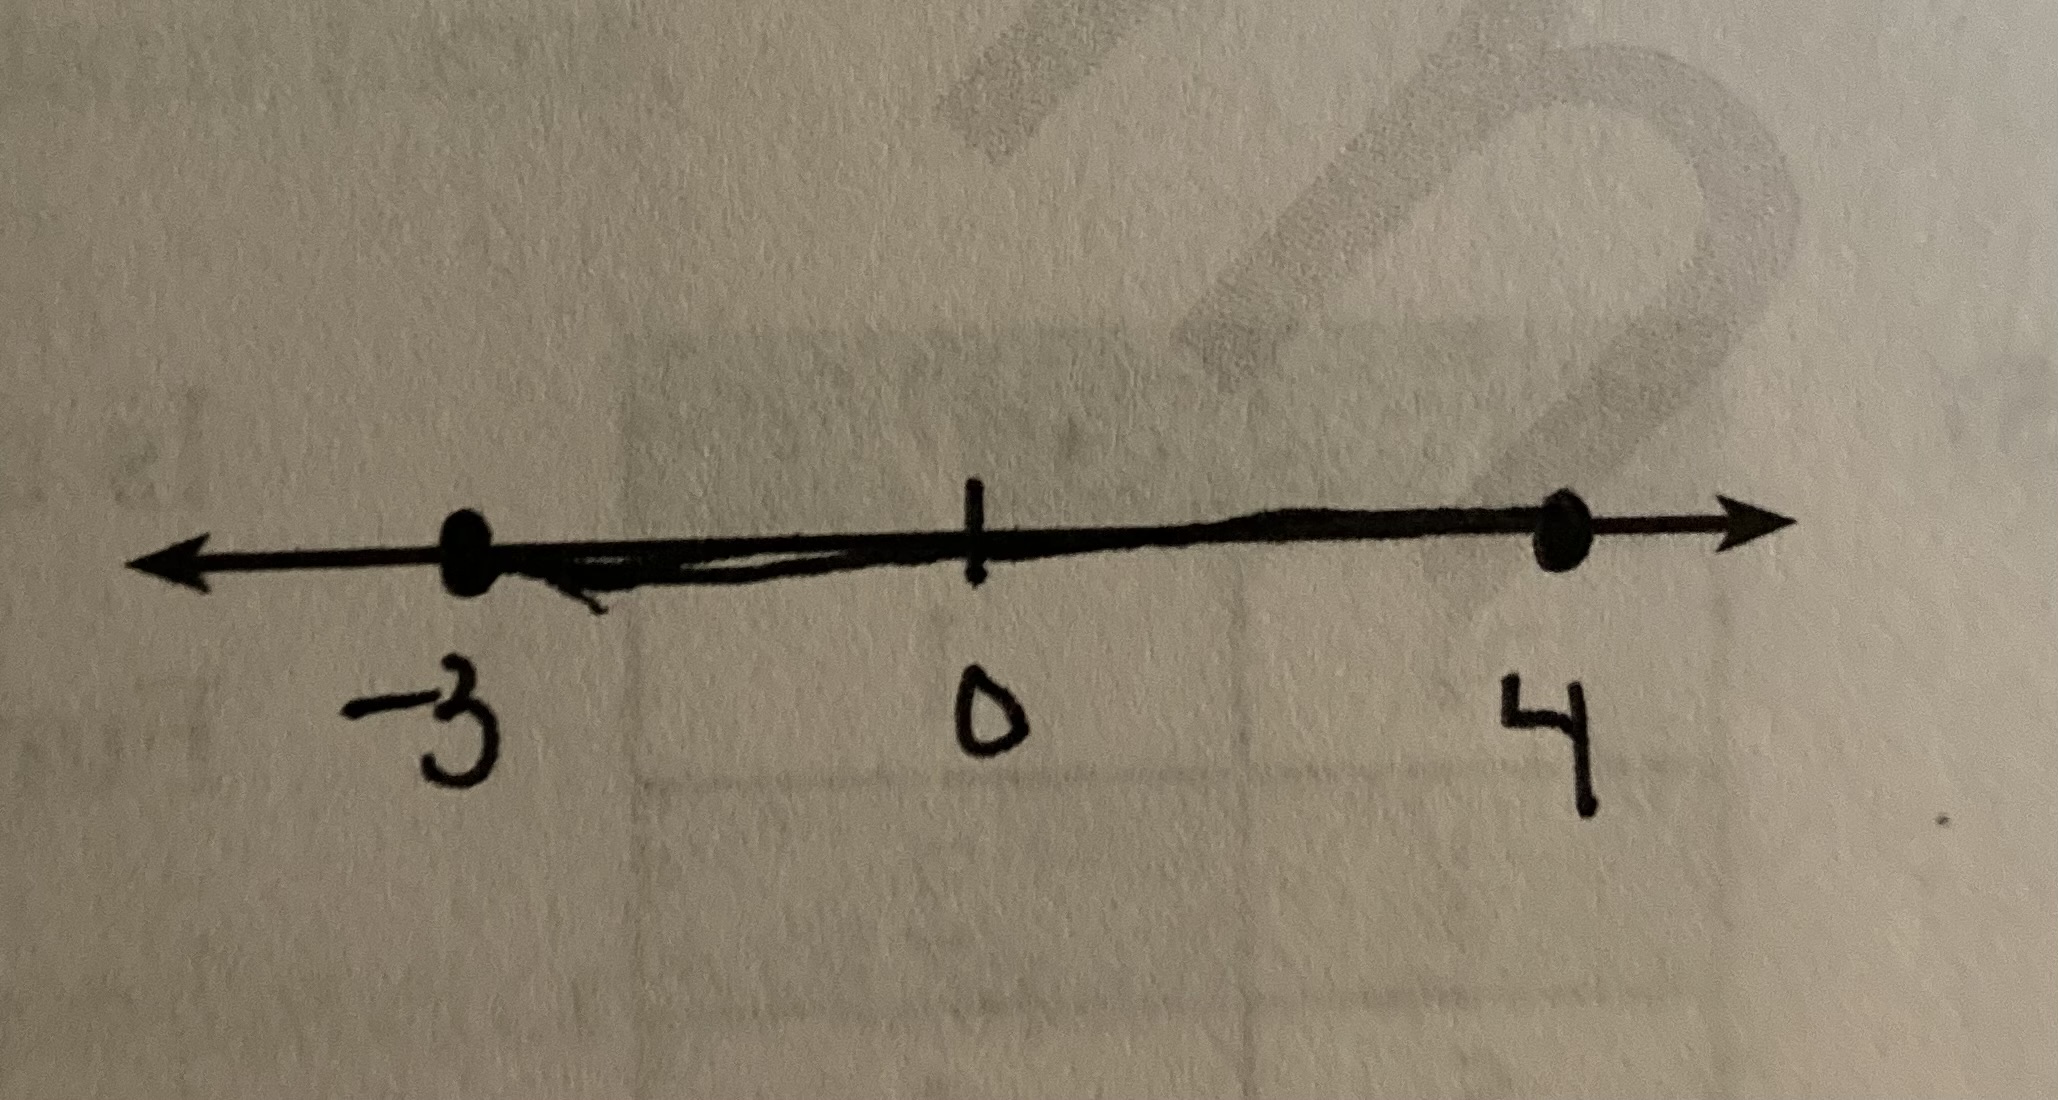 -3 0 4